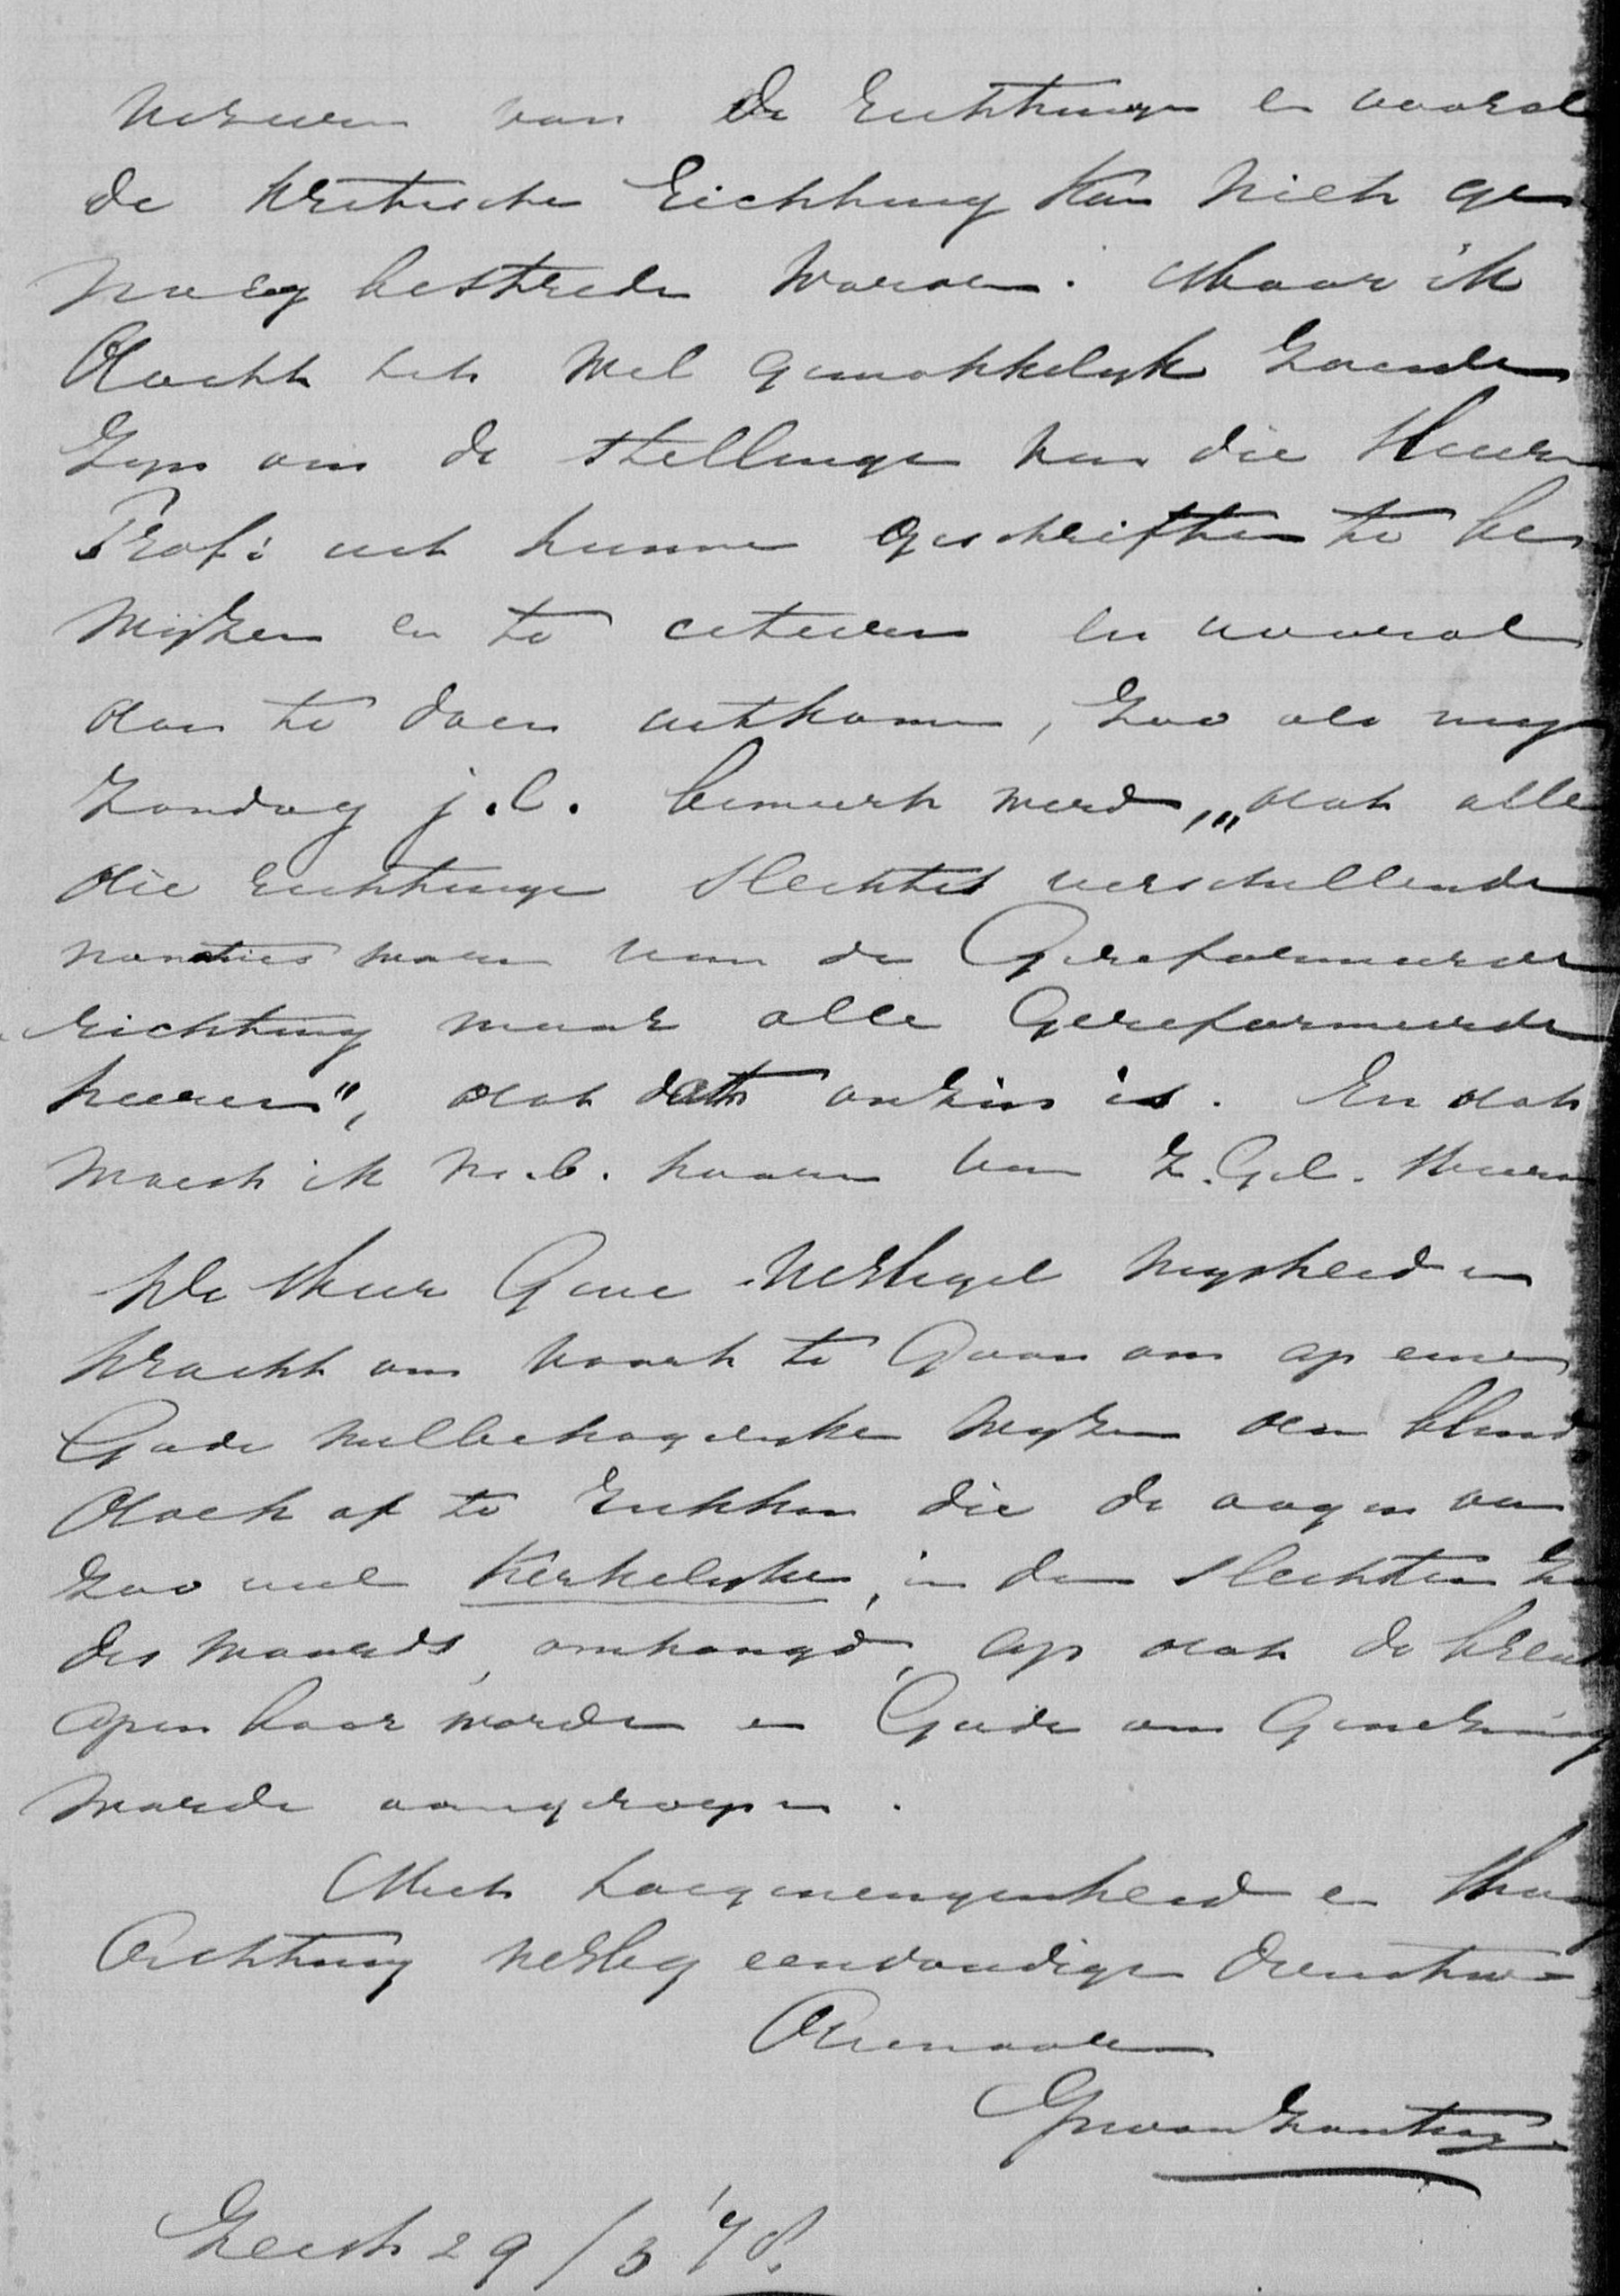 van de richtingen en vooral
de kritische richting kan niet ge
noeg bestreden worden. Maar ik
dacht het wel gemakkelijk zoude
zijn om de stellingen van die Heeren
Prof: uit hunne geschriften te be
wijzen en te citeren en vooral
dan te doen uitkomen, zoo als mij
Zondag j.l. bemerkt werd, „dat alle
die richtingen slechts verschillende
waren van de Gereformeerde
richting maar alle Gereformeerde
heeren", dat dat onzin is. En dat
moest ik n.b. hooren van Z.Gel. Heeren
De Heere Geve UEd wijsheid en
kracht om voort te Gaan om op eene
Gode welbehagelijke wijze den blind
doek af te rukken die de oogen van
zoo veel Kerkelijke, in den slechten zin
des woords, omhangd, op dat de breuk
openbaar worde en Gode om Genezing
worde aangeroepen.
Met hoogenegenheid en
Achting eenvoudige Dienstw=
Dienaar
Zeist 29/3 '78.